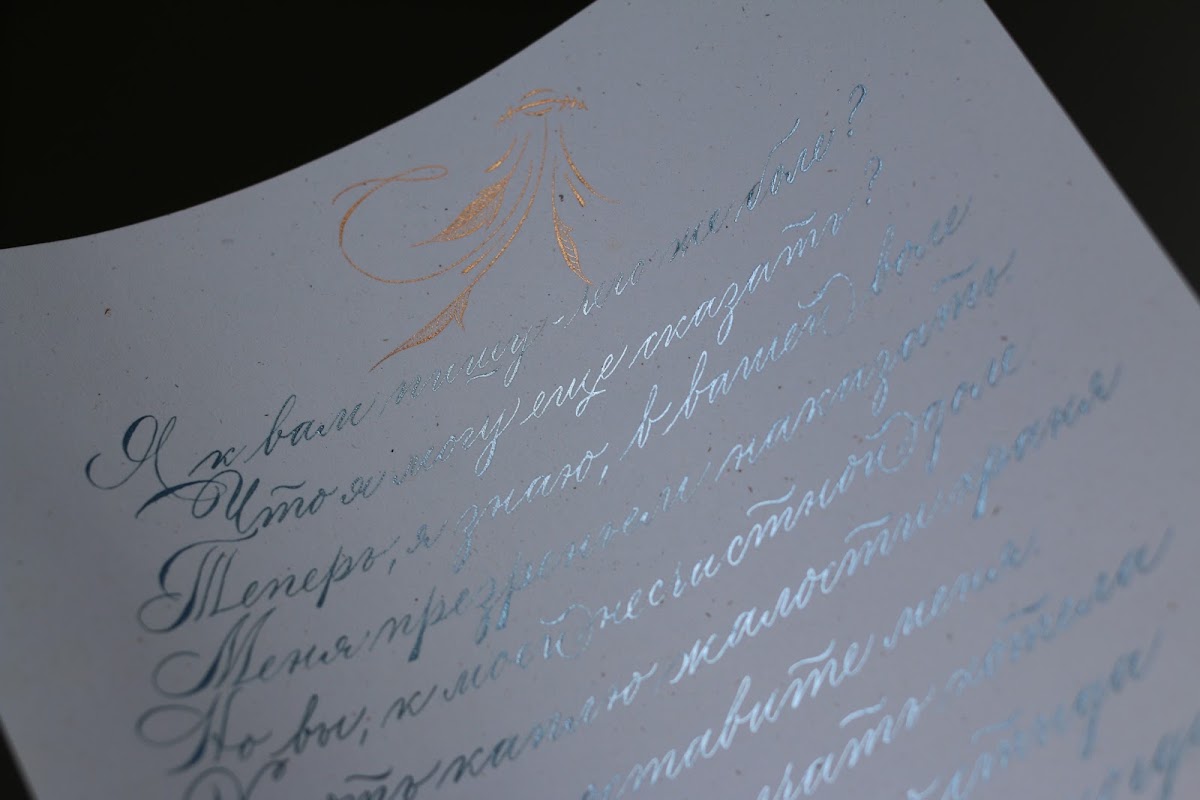 Я к вам пишу - чего же боле?
Что я могу еще сказать?
Теперь, я знаю, в вашей воле
Меня презреньем наказать
Но вы, к моей несчастной доле
Хоть каплю жалости храня
оставите меня.
молчать хотела
стыда